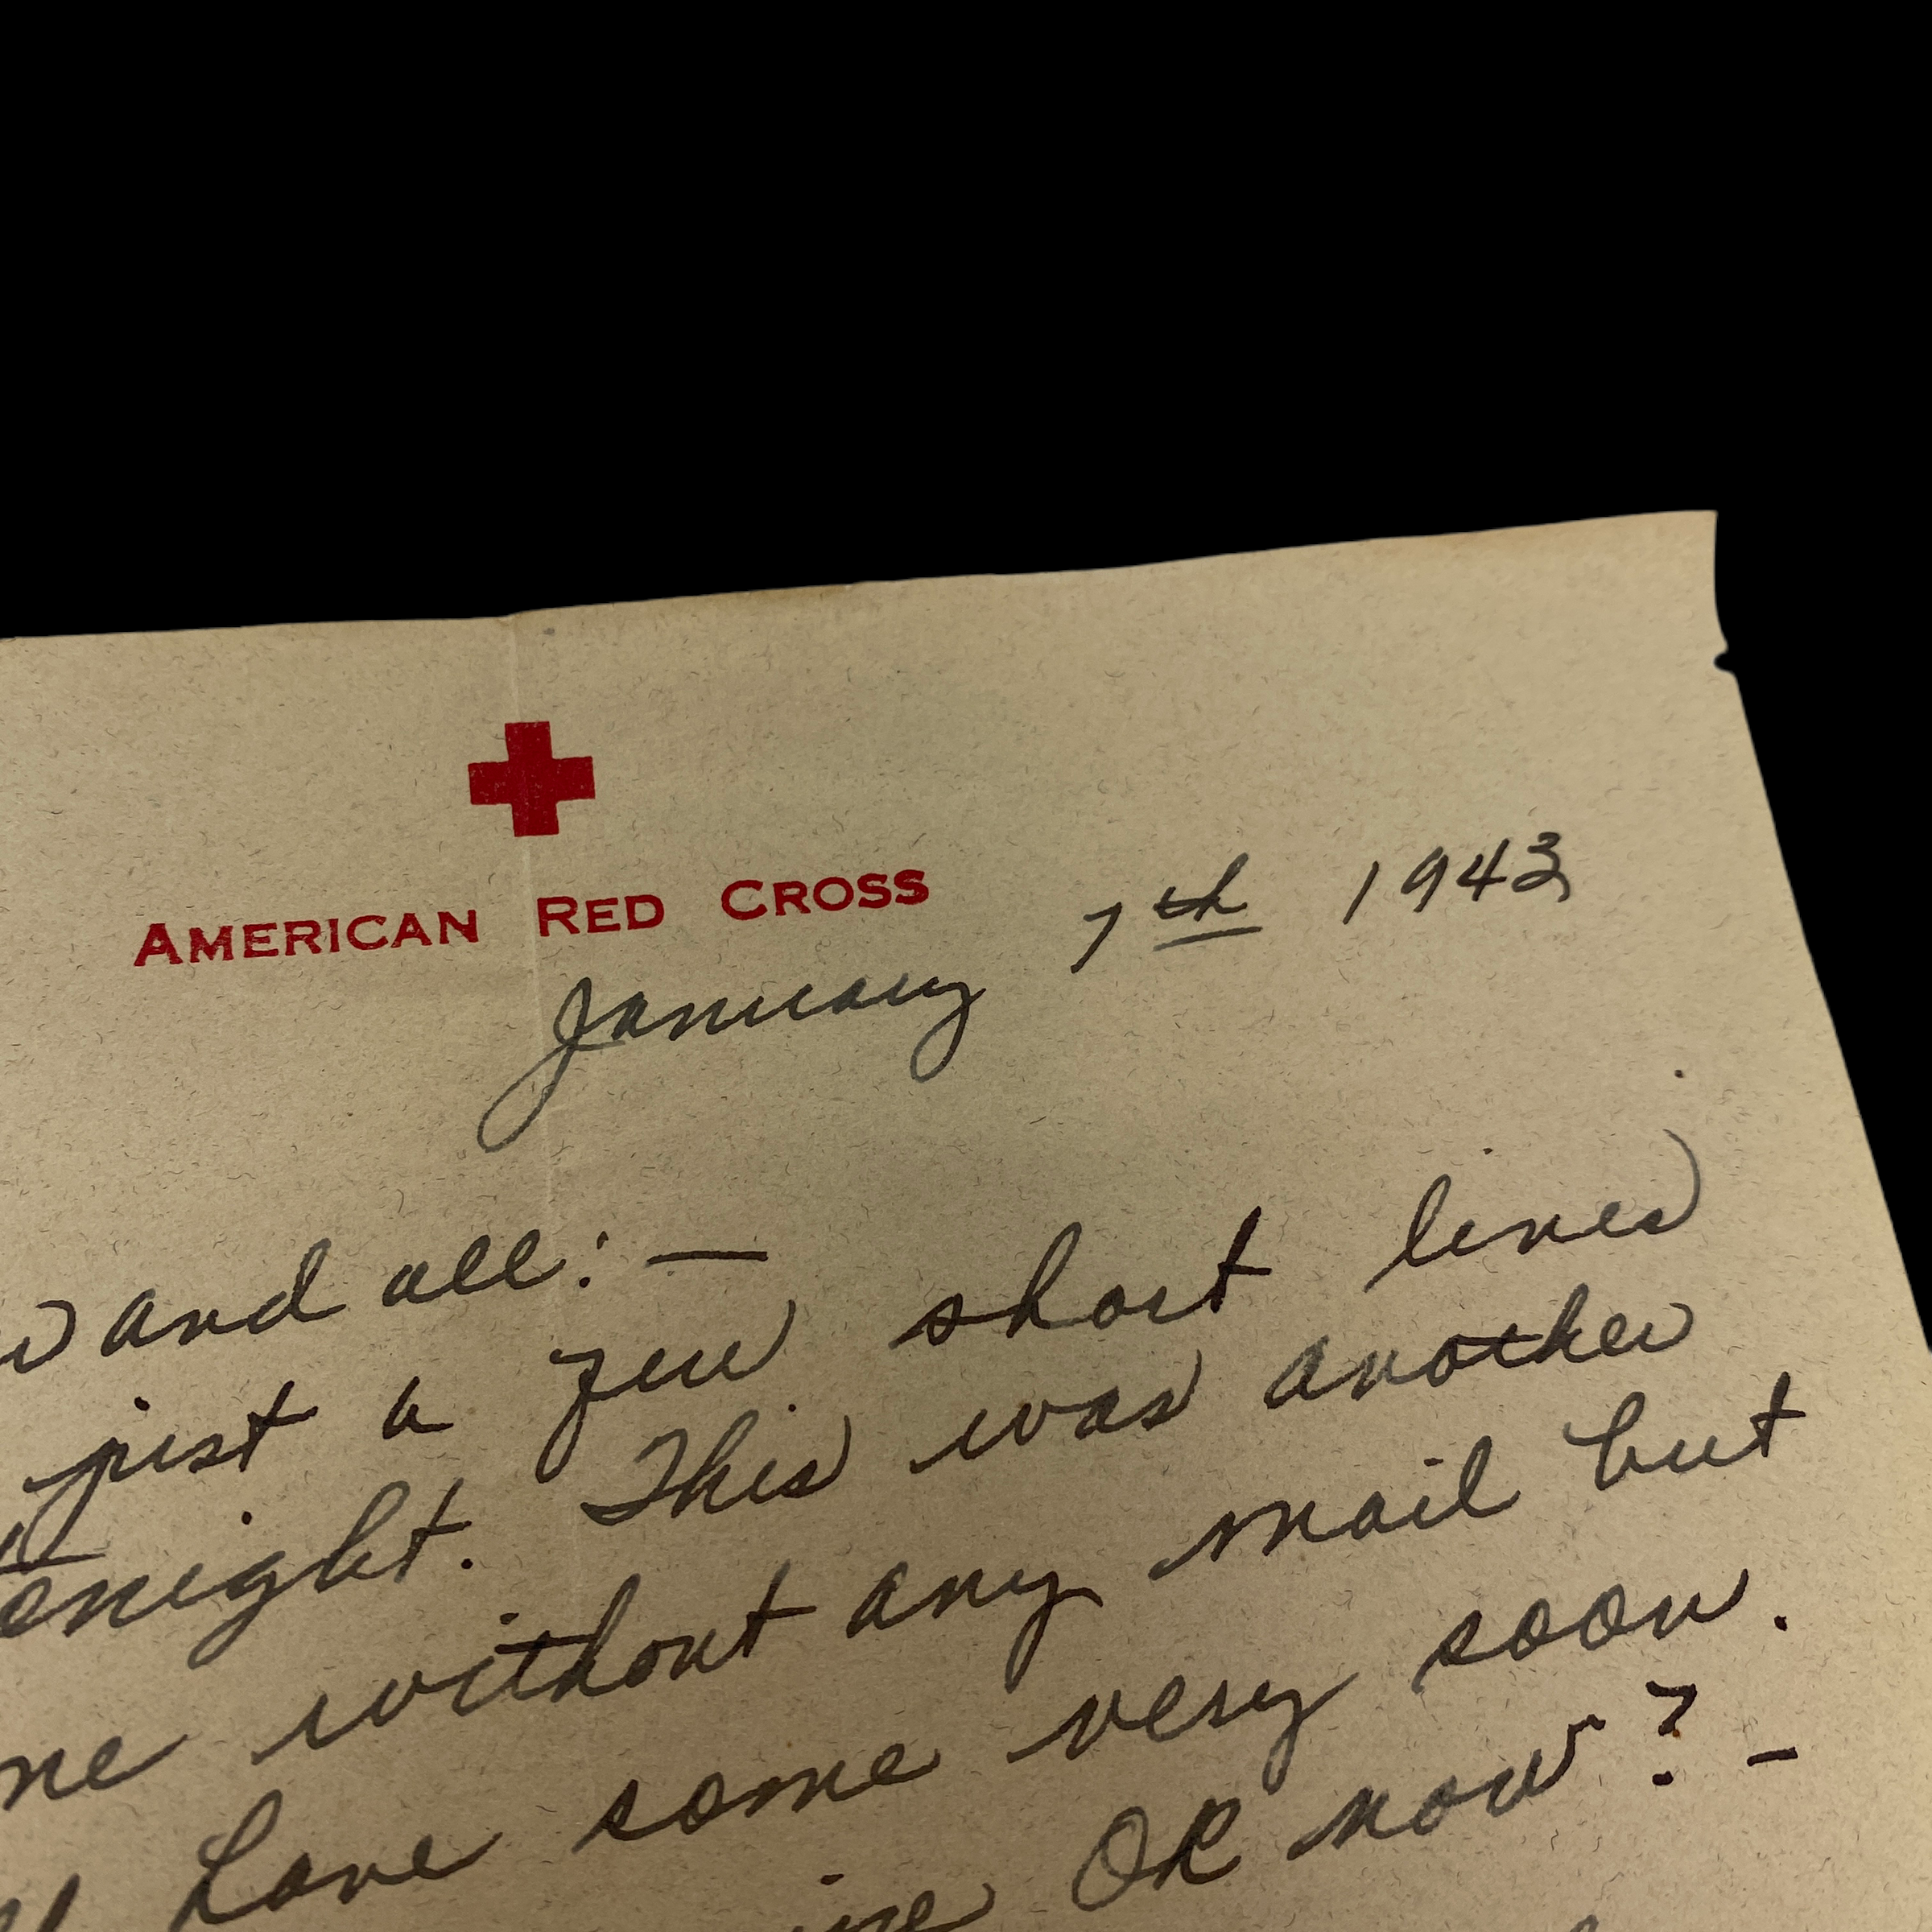 AMERICAN RED CROSS
January 7th 1943
and all: —
just a few short lines
tonight. This was another
without any mail but
have some very soon.
OK now? -